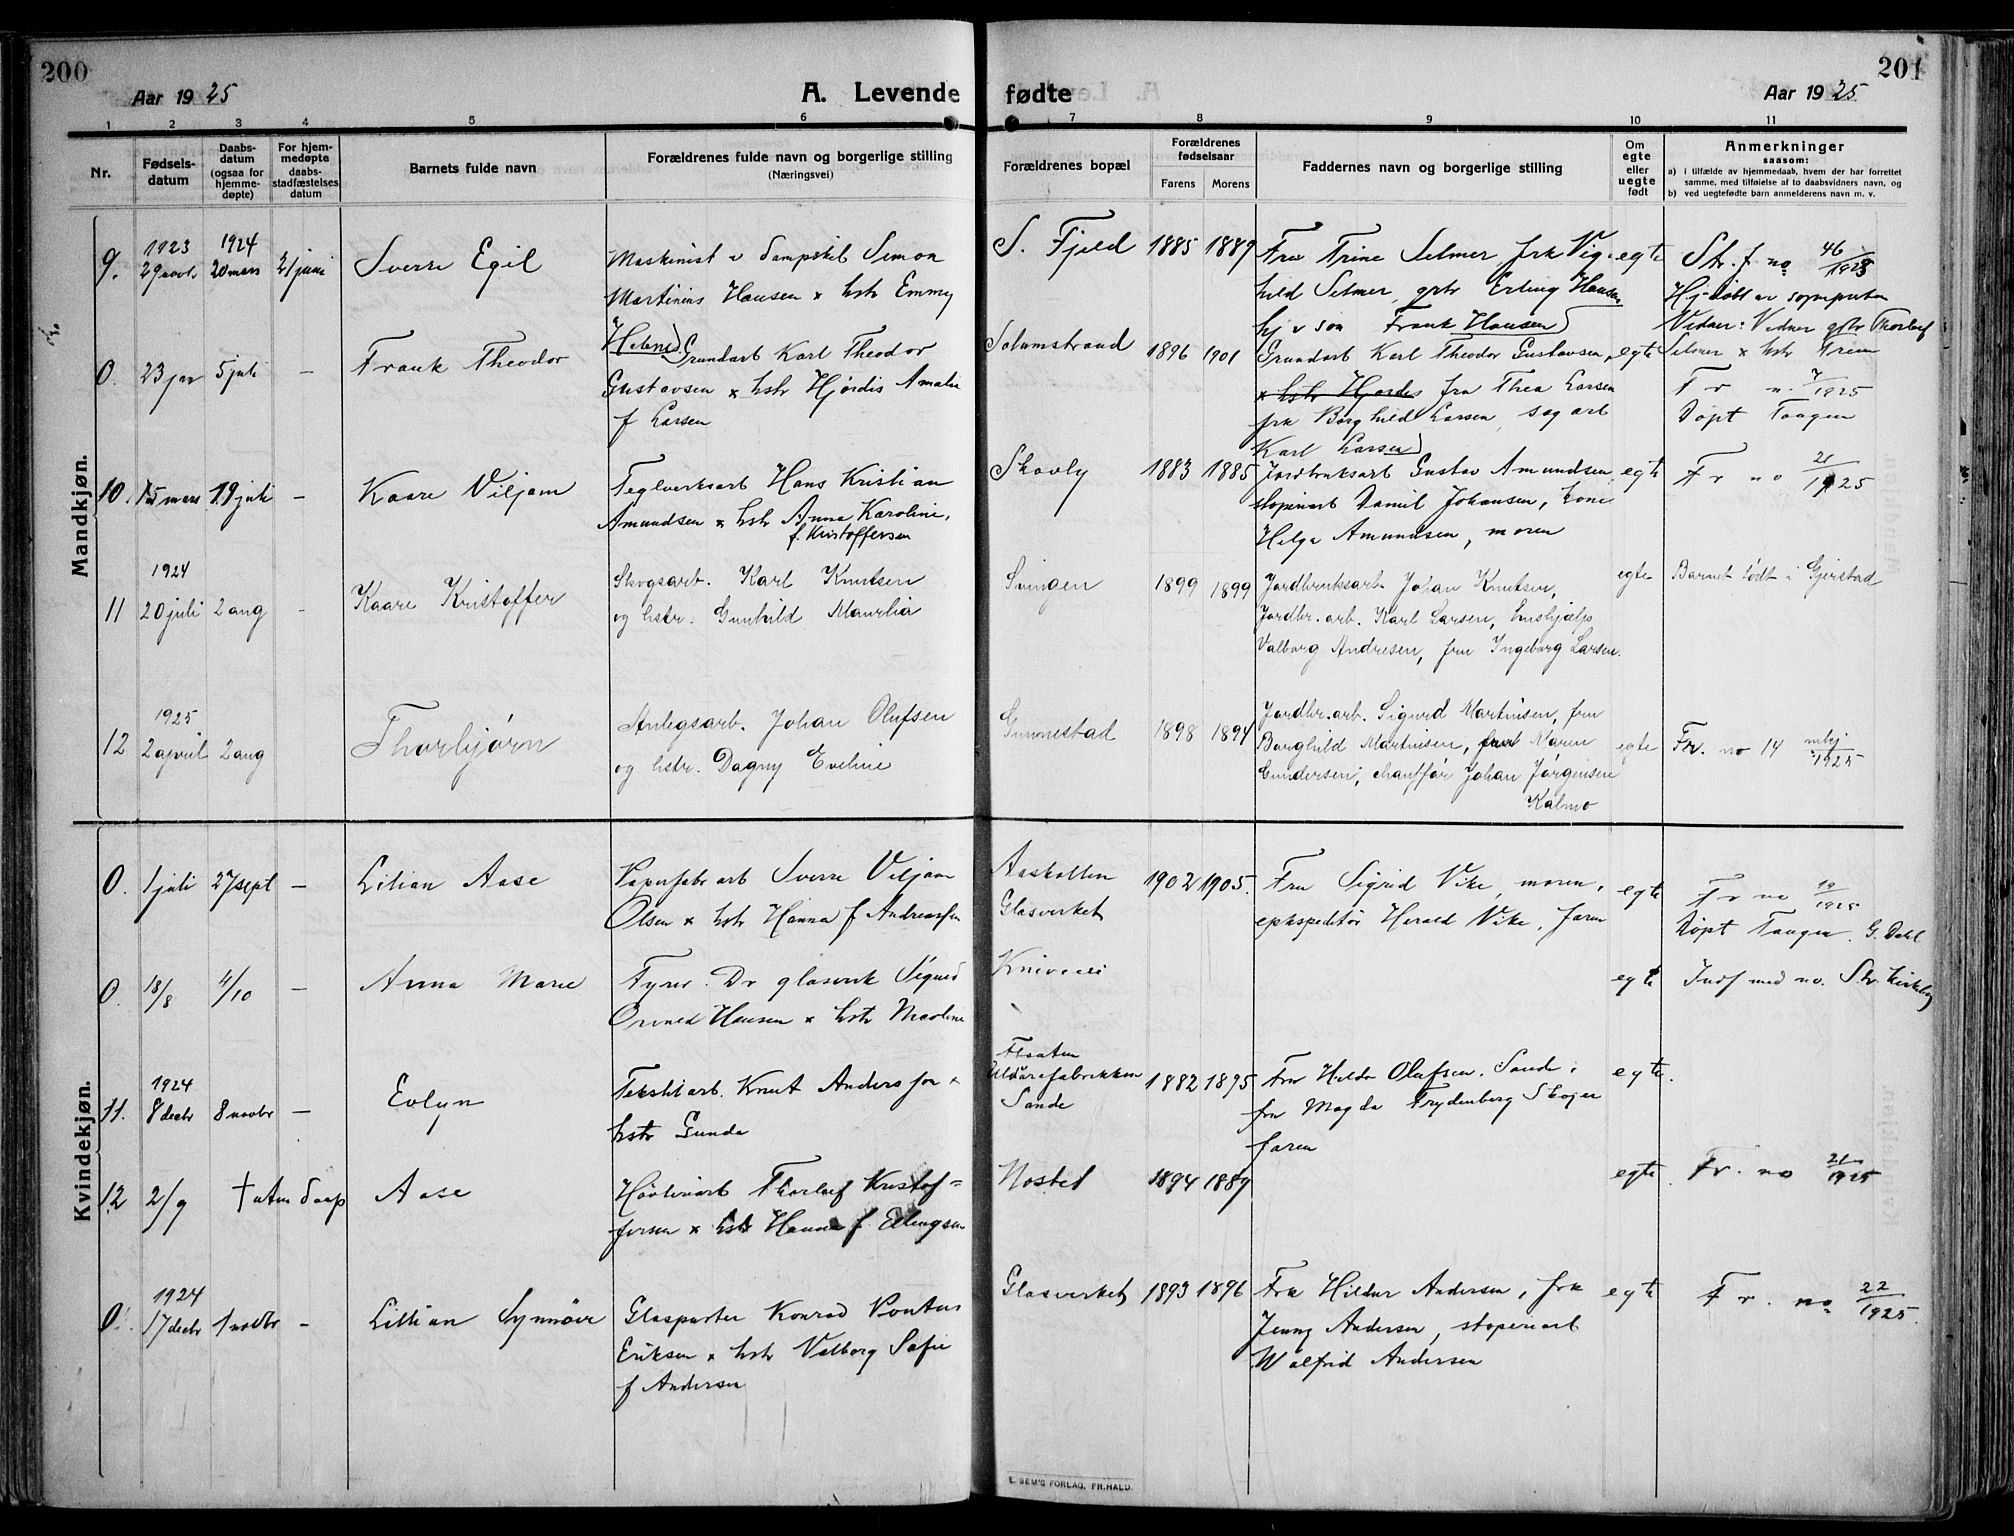 200
Aar 1925
A. Levende
1 2 3 4 5 6
Nr.
Fødsels-
datum
Daabs-
datum
(ogsaa for
hjemme-
døpte)
For hjem-
medøpte
daabs-
stadfæstelses
datum
Barnets fulde navn
Forældrenes fulde navn og borgerlige stilling
(Næringsvei)
Mandkjøn.
9. 1923 29 novb. 1924 20 mars 21 juni Sverre Egil
Maskinist v Dampskib Simon
Martinius Hansen x hstr Emmy
Helene)
0. 23 jan 5 juli – Frank Theodor
Grundarb Karl Theodor
Gustavsen x hstr Hjørdis Amalie
f Larsen
10. 15 mars 19 juli – Kaare Viljam
Teglverksarb Hans Kristian
Amundsen x hstr Anna Karoline,
f. Kristoffersen
1924
11 20 juli 2 aug – Kaare Kristoffer
Skogsarb. Karl Knutsen
og hstr. Gunhild Maurlia
1925
12 2 april 2 aug Thorbjørn
Anlegsarb. Johan Olufsen
og hstr. Dagny Eveline
Kvindekjøn.
0. 1 juli 27 sept – Lilian Aase
Papirfabr arb Sverre Viljam
Olsen x hstr Hanna f Andreassen
0. 18/8 4/10 – Anna Marie
Fyrer. Dr glasverk Sigurd
Hansen x hstr Nicoline
1924
11. 8 decbr 8 novbr – Evlyn
Tekstilarb. Knut Andersson x
hstr Gunda
12 2/9 † uten daap Aase
Høvleriarb Thorleif Kristof=
fersen x hstr Hanna f. Ellingsen
1924
0 17 decbr 1 novbr – Lillian Synnøve
Glaspuster Konrad Pontus
Eriksen x hstr Valborg Sofie
f Andersen
201
fødte
Aar 1925
7 8 9 10 11
Forældrenes bopæl
Forældrenes
fødselsaar
Farens Morens
Faddernes navn og borgerlige stilling
Om
egte
eller
uegte
født
Anmerkninger
saasom:
a) i tilfælde av hjemmedaab, hvem der har forrettet
samme, med tilføielse af to daabsvidners navn, og
b) ved uegtefødte barn anmelderens navn m. v.
S. Fjeld 1885 1889
Fru Trine Selmer frk Vig-
hild Selmer, grbr Erling Hansen
hj v son Frank Hansen)
egte
Str. f no 46/1923
Hj døbt av sogneprsten
Vidner: Vidner gstr Thorleif
Selmer x hstr Trine
Solumstrand 1896 1901
Grundarb Karl Theodor Gustavsen,
x hstr Hjørdis fru Thea Larsen
frk Borghild Larsen, sag arb
Karl Larsen)
egte
Fr n. 7/1925
Døpt Tangen
Skovly 1883 1885
Jordbruksarb Gustav Amundsen,
stoperiarb Daniel Johansen, kone
Helga Amundsen, moren
egte
Fr no 21/1925
Svingen 1899 1899
Jordbruksarb. Johan Knutsen,
Jordbr. arb. Karl Larsen, hushjælp
Valborg Andresen, fru Ingeborg Larsen.
egte
Barnet født i Gjerstad
Gunnestad 1898 1894
Jordbr. arb. Sigurd Martinsen, fru
Borghild Martinsen, fru Maren
Gundersen, chauffør Johan Jørgensen
Kalmo
egte
Fr. no 14 mkj/1925
Aaskollen
Glasverket
1902 1905.
Fru Sigrid Vike, moren,
ekspeditør Harald Vike, faren
egte
Fr no 19/1925
Døpt Tangen. G. Dahl
Kniveveien
egte
Indf med no. Str. Kirkebog
Flaaten
Uldvarefabrikken
Sande
1882 1895
Fru Hilda Olufsen. Sande,
fru Magda Frydenberg Skoger
faren
egte.
Nøsted 1894 1889
egte
Fr. no 21/1925
Glasverket 1893 1896
Fru Hildur Andersen, frk
Jenny Andersen, stoperiarb
Walfrid Andersen
egte
Fr. no 22/1925.
E. SEM'S FORLAG, FR.HALD.